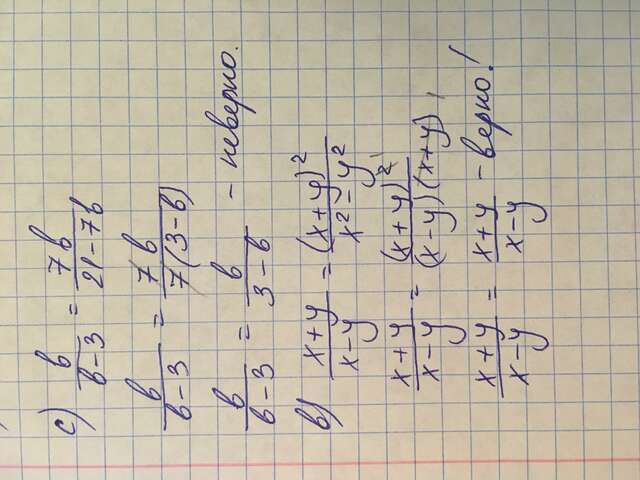 c) b/(b-3) = 7b/(21-7b)
b/(b-3) = 7b/(7(3-b))
b/(b-3) = b/(3-b) - неверно.
b) (x+y)/(x-y) = (x+y)²/(x²-y²)
(x+y)/(x-y) = (x+y)²/((x-y)(x+y))
(x+y)/(x-y) = (x+y)/(x-y) - верно!